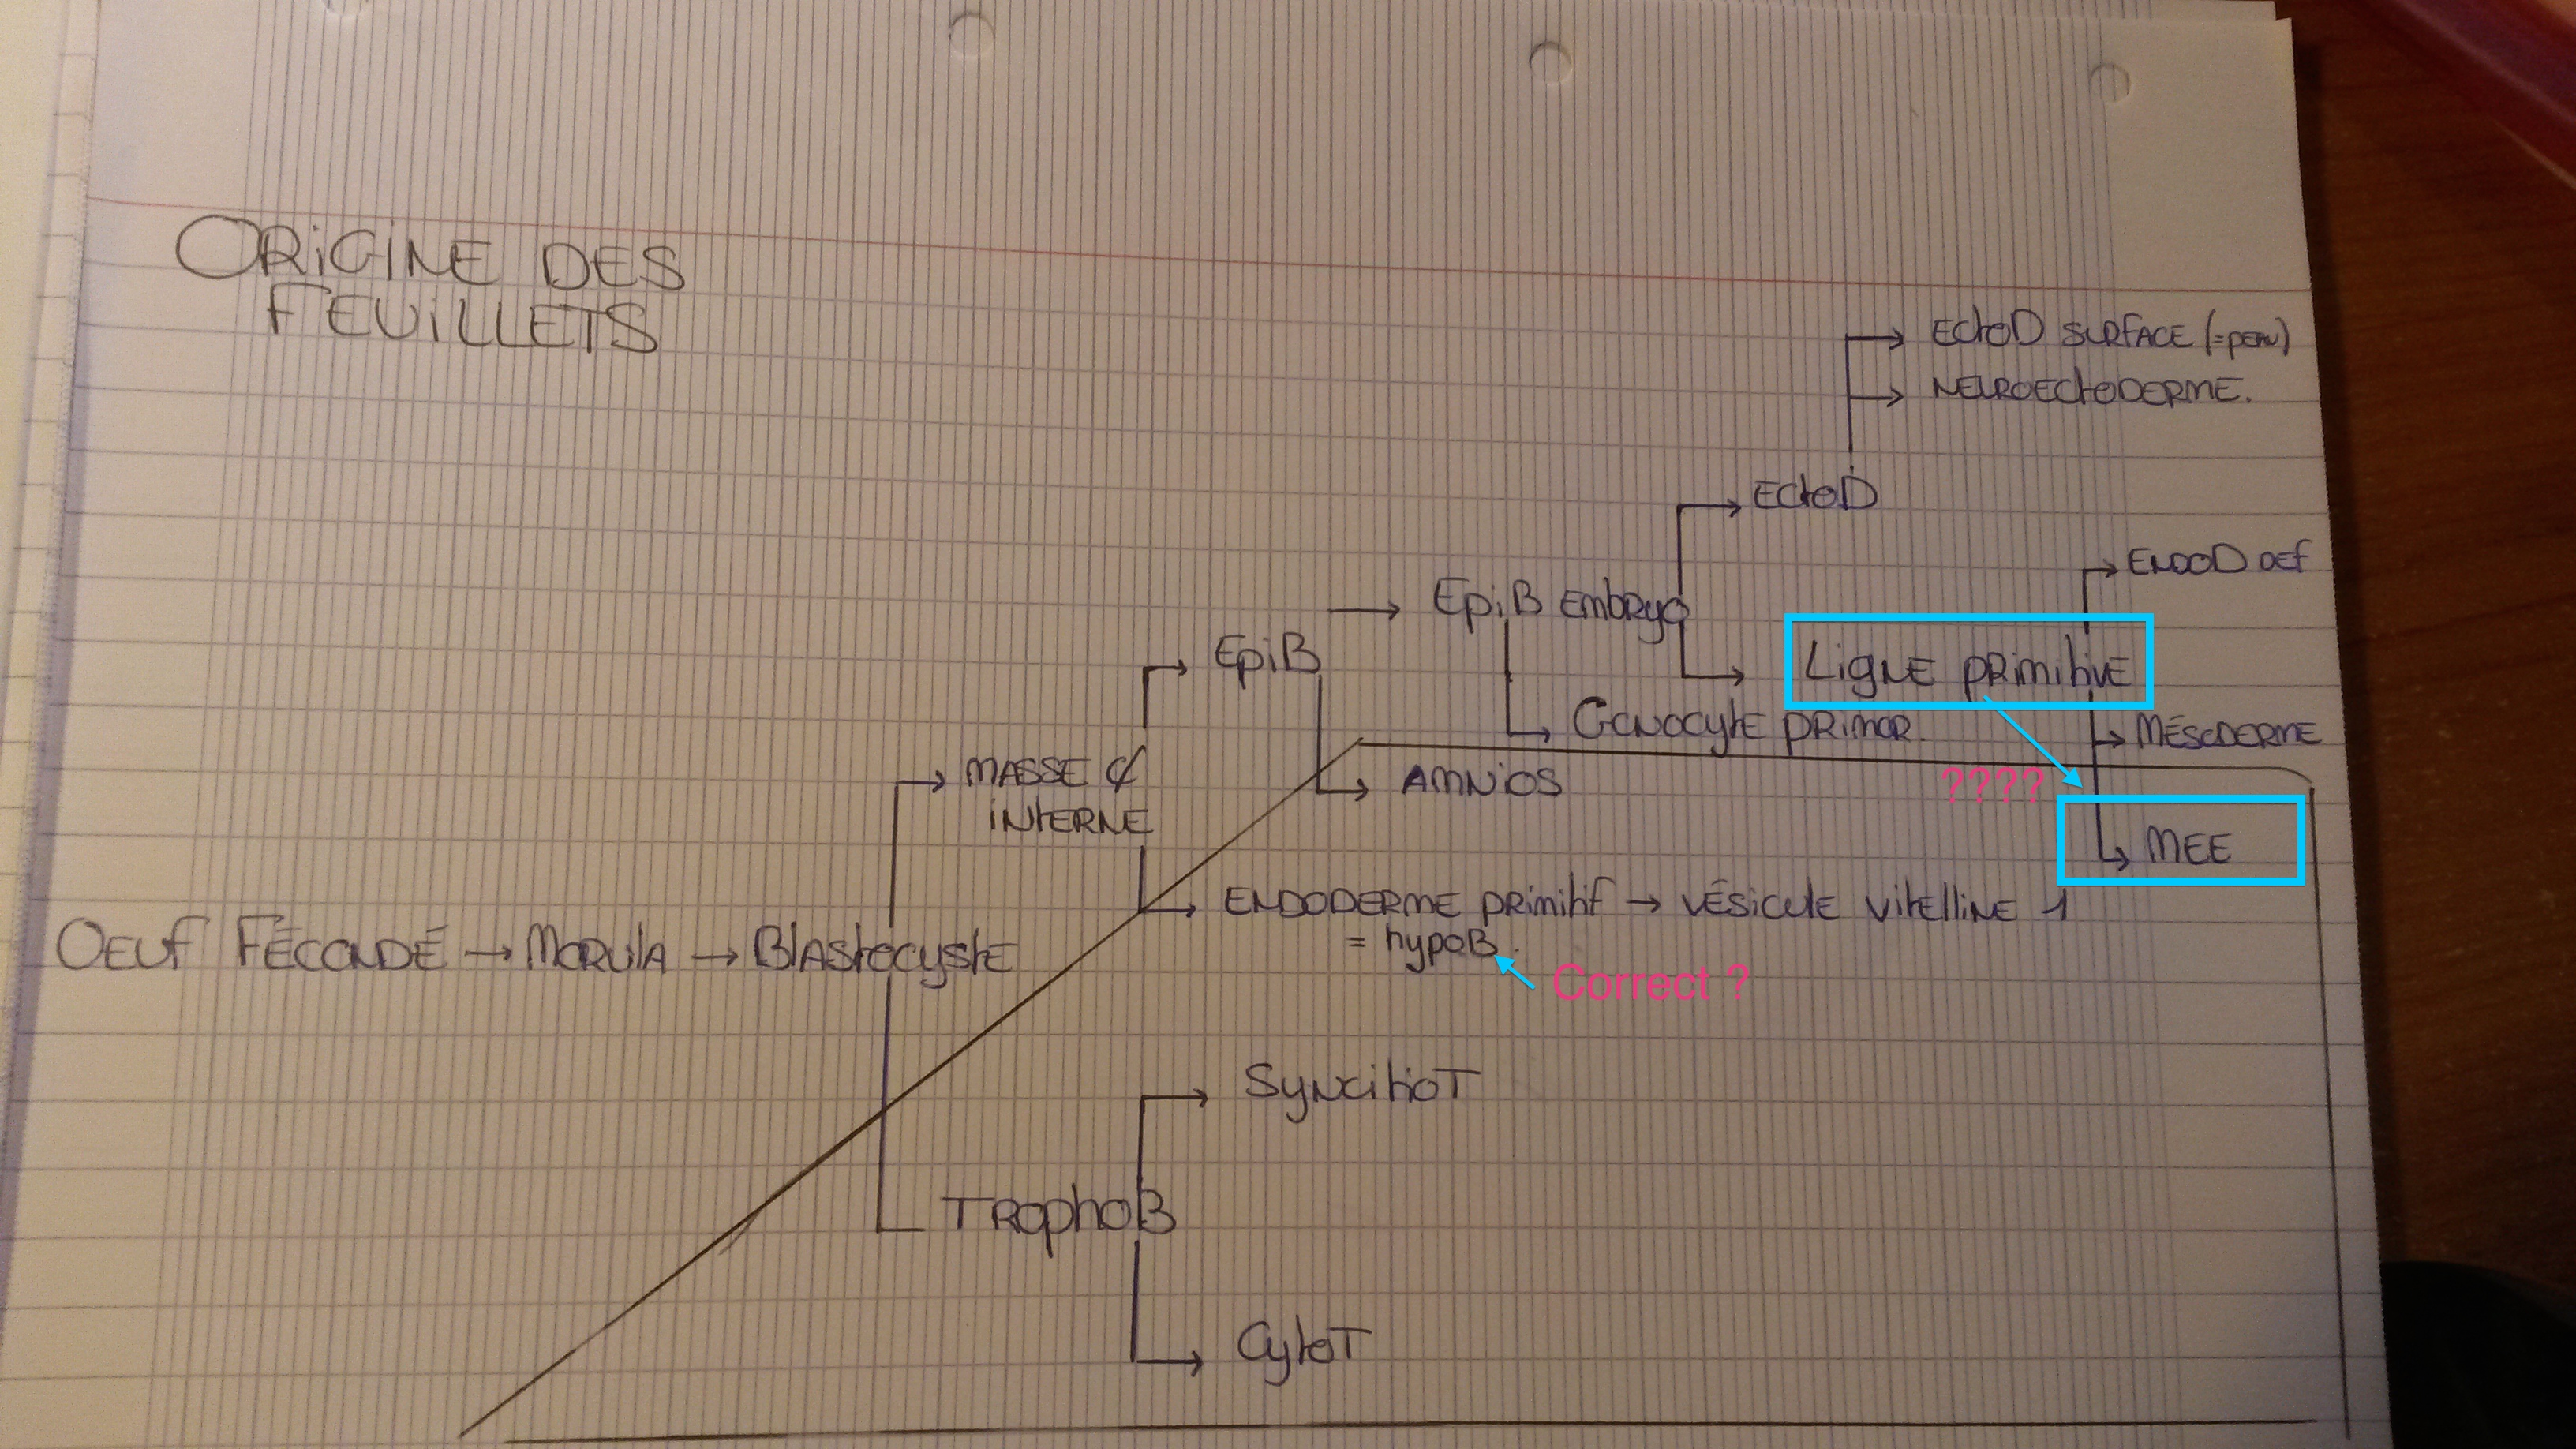 ORiGiNE DES
FEUiLLETS
EctoD SURFACE (=peau)
NEUROECtODERME.
EctoD
ENDOD DEF
EpiB EMbRyo
EpiB
LigNE pRimitivE
GONOCytE pRIMOR.
MÉSODERME
MASSE ₵
iNtERNE
AMNiOS
????
MEE
OEUf FÉCONDÉ → MORUlA → BlAStocystE
ENDODERME pRimitif → VÉSiCUlE VitElliNE 1
= hypoB.
Correct ?
SyNcitioT
TRophoB
CytoT